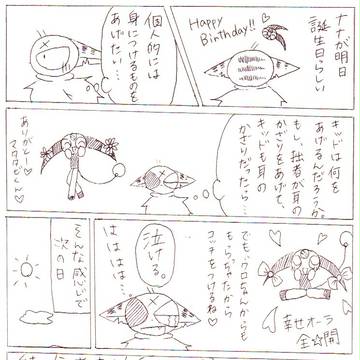 ナナが明日
誕生日らしい
Happy
Birthday!!
個人的には
身につけるものを
あげたい…
キッドは何を
あげるんだろうか。
もし、拙者が耳の
かざりをあげて、
キッドも耳の
かざりだったら…
ありがと
マタタビくん♡
幸せオーラ
全☆開
でも、クロちゃんからも
もらっちゃたから
コッチをつけるね♡
泣ける。
はははは…
そんな感じで
次の日